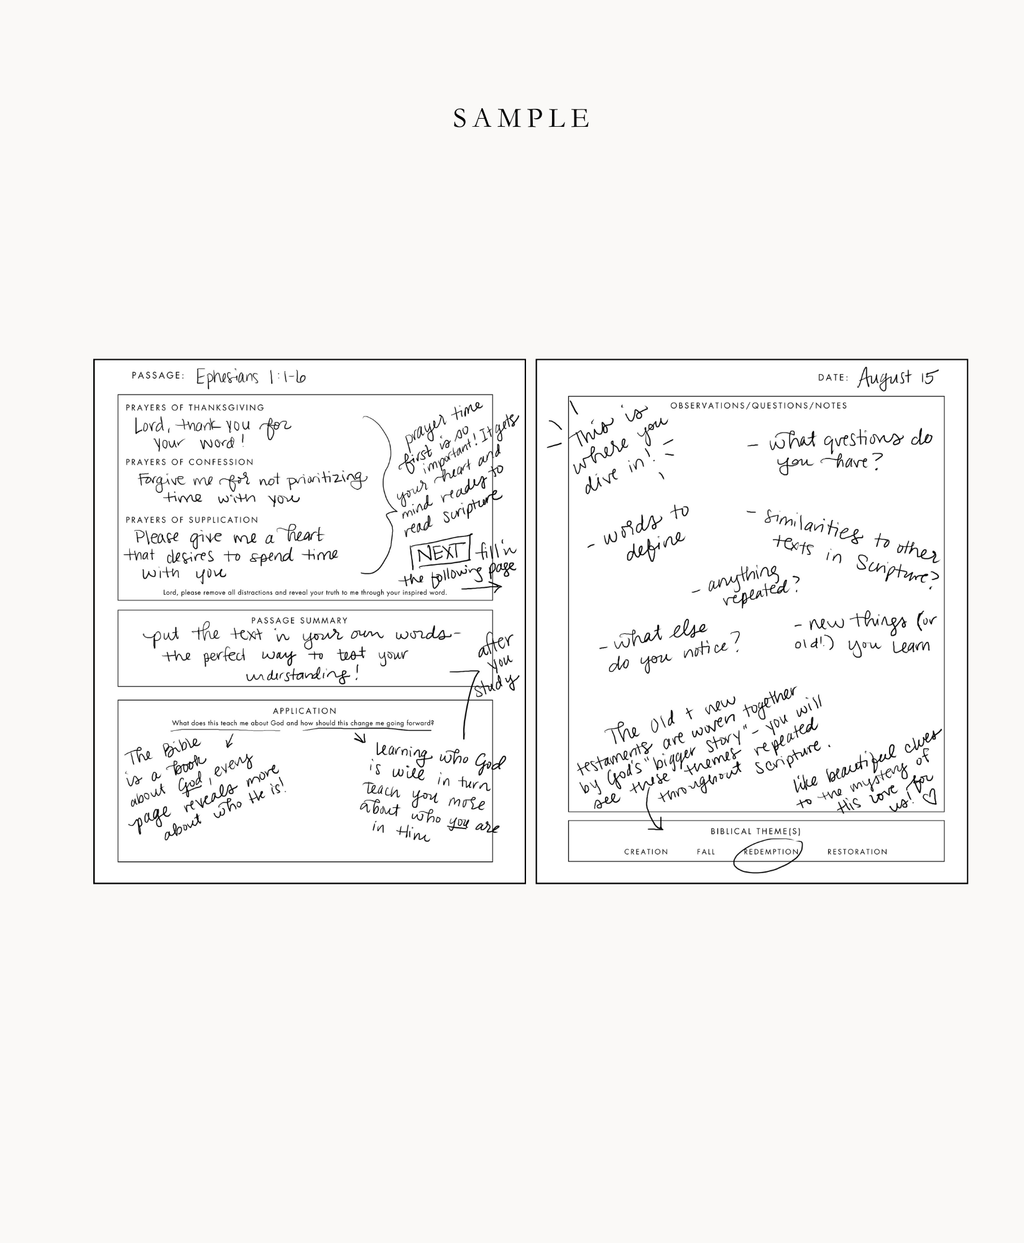 SAMPLE
PASSAGE: Ephesians 1:1-6
PRAYERS OF THANKSGIVING
Lord, thank you for
your word!
PRAYERS OF CONFESSION
Forgive me for not prioritizing
time with you
PRAYERS OF SUPPLICATION
Please give me a heart
that desires to spend time
with you
prayer time
first is so
important! It gets
your heart and
mind ready to
read scripture
NEXT fill in
the following page
Lord, please remove all distractions and reveal your truth to me through your inspired word.
PASSAGE SUMMARY
put the text in your own words-
the perfect way to test your
understanding!
after
you
study
APPLICATION
What does this teach me about God and how should this change me going forward?
The Bible
is a book
about God, every
page reveals more
about who He is!
learning who God
is will in turn
teach you more
about who you are
in Him
DATE: August 15
OBSERVATIONS/QUESTIONS/NOTES
This is
where you
dive in!
- what questions do
you have?
- words to
define
- similarities to other
texts in Scripture?
- anything
repeated?
- what else
do you notice?
- new things (or
old!) you learn
The old + new
testaments are woven together
by God's "bigger story" - you will
see these themes repeated
throughout Scripture.
like beautiful clues
to the mystery of
His love for
us! ♡
BIBLICAL THEME[S]
CREATION FALL REDEMPTION RESTORATION